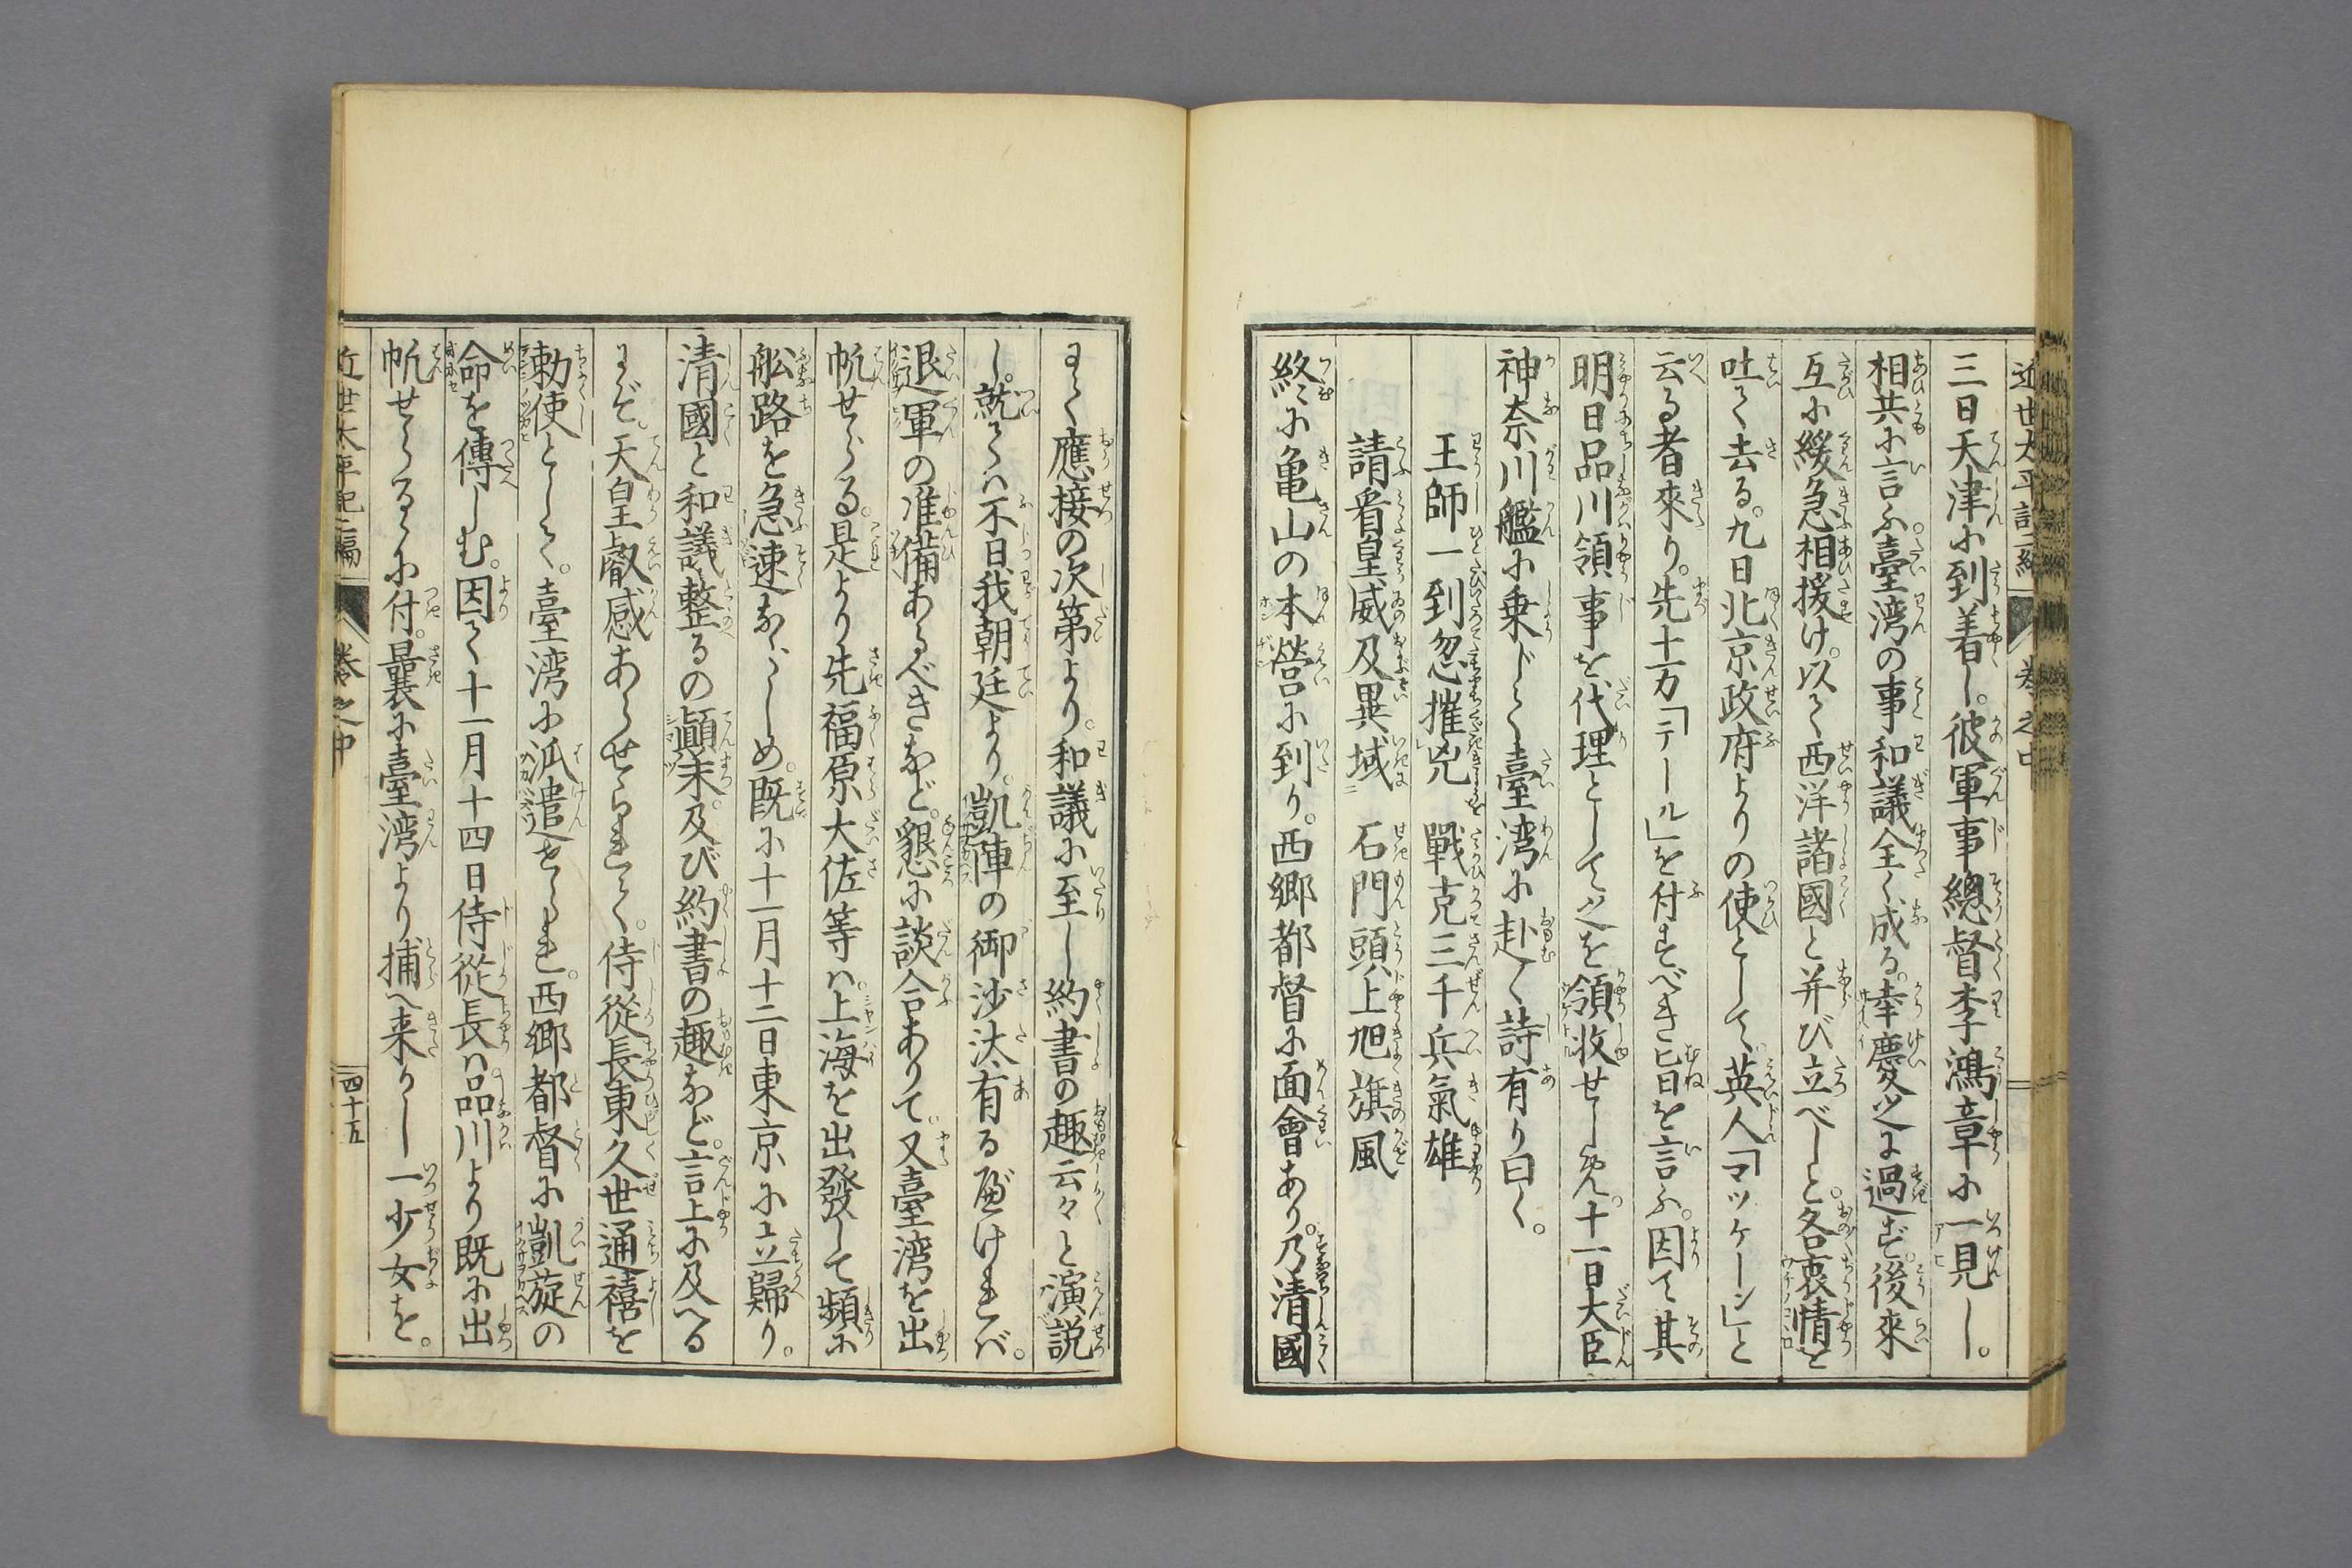 近世太平記二編 巻之中
三日天津に到着し。彼軍事總督李鴻章に一見し。
相共に言ふ。臺湾の事和議全く成る。幸慶之に過ぎず。後來
互に緩急相援け。以て西洋諸國と并び立べしと。各衷情を
吐て去る。九日北京政府よりの使として。英人「マツケーシ」と
云る者來り。先十万「テール」を付すべき旨を言ふ。因て其
明日品川領事を代理として之を領收せしめ。十一日大臣
神奈川艦に乗じて臺湾に赴く詩有り曰く。
王師一到忽摧兇　戰克三千兵氣雄
請看皇威及異域　石門頭上旭旗風
終に亀山の本營に到り。西郷都督に面會あり。乃清國
にて應接の次第より。和議に至し約書の趣云々と演説
し。就ては不日我朝廷より。凱陣の御沙汰有る可ければ。
退軍の准備あるべきなど。懇に談合ありて。又臺湾を出
帆せらる。是より先福原大佐等は。上海を出發して頻に
舩路を急速ならしめ。既に十一月十二日東京に立歸り。
清國と和議整るの顛末。及び約書の趣など。言上に及べる
にぞ。天皇叡感あらせられて。侍從長東久世通禧を
勅使として。臺湾に派遣せられ。西郷都督に凱旋の
命を傳しむ。因て十一月十四日侍從長は品川より既に出
帆せらるゝに付。曩に臺湾より捕へ来りし一少女を。
近世太平記二編 巻之中 四十五